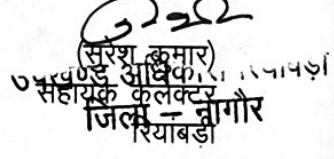 (सुरेश कुमार)
उपखण्ड अधिका
सहायक कलेक्टर
जिला – नागौर
रियांबड़ी